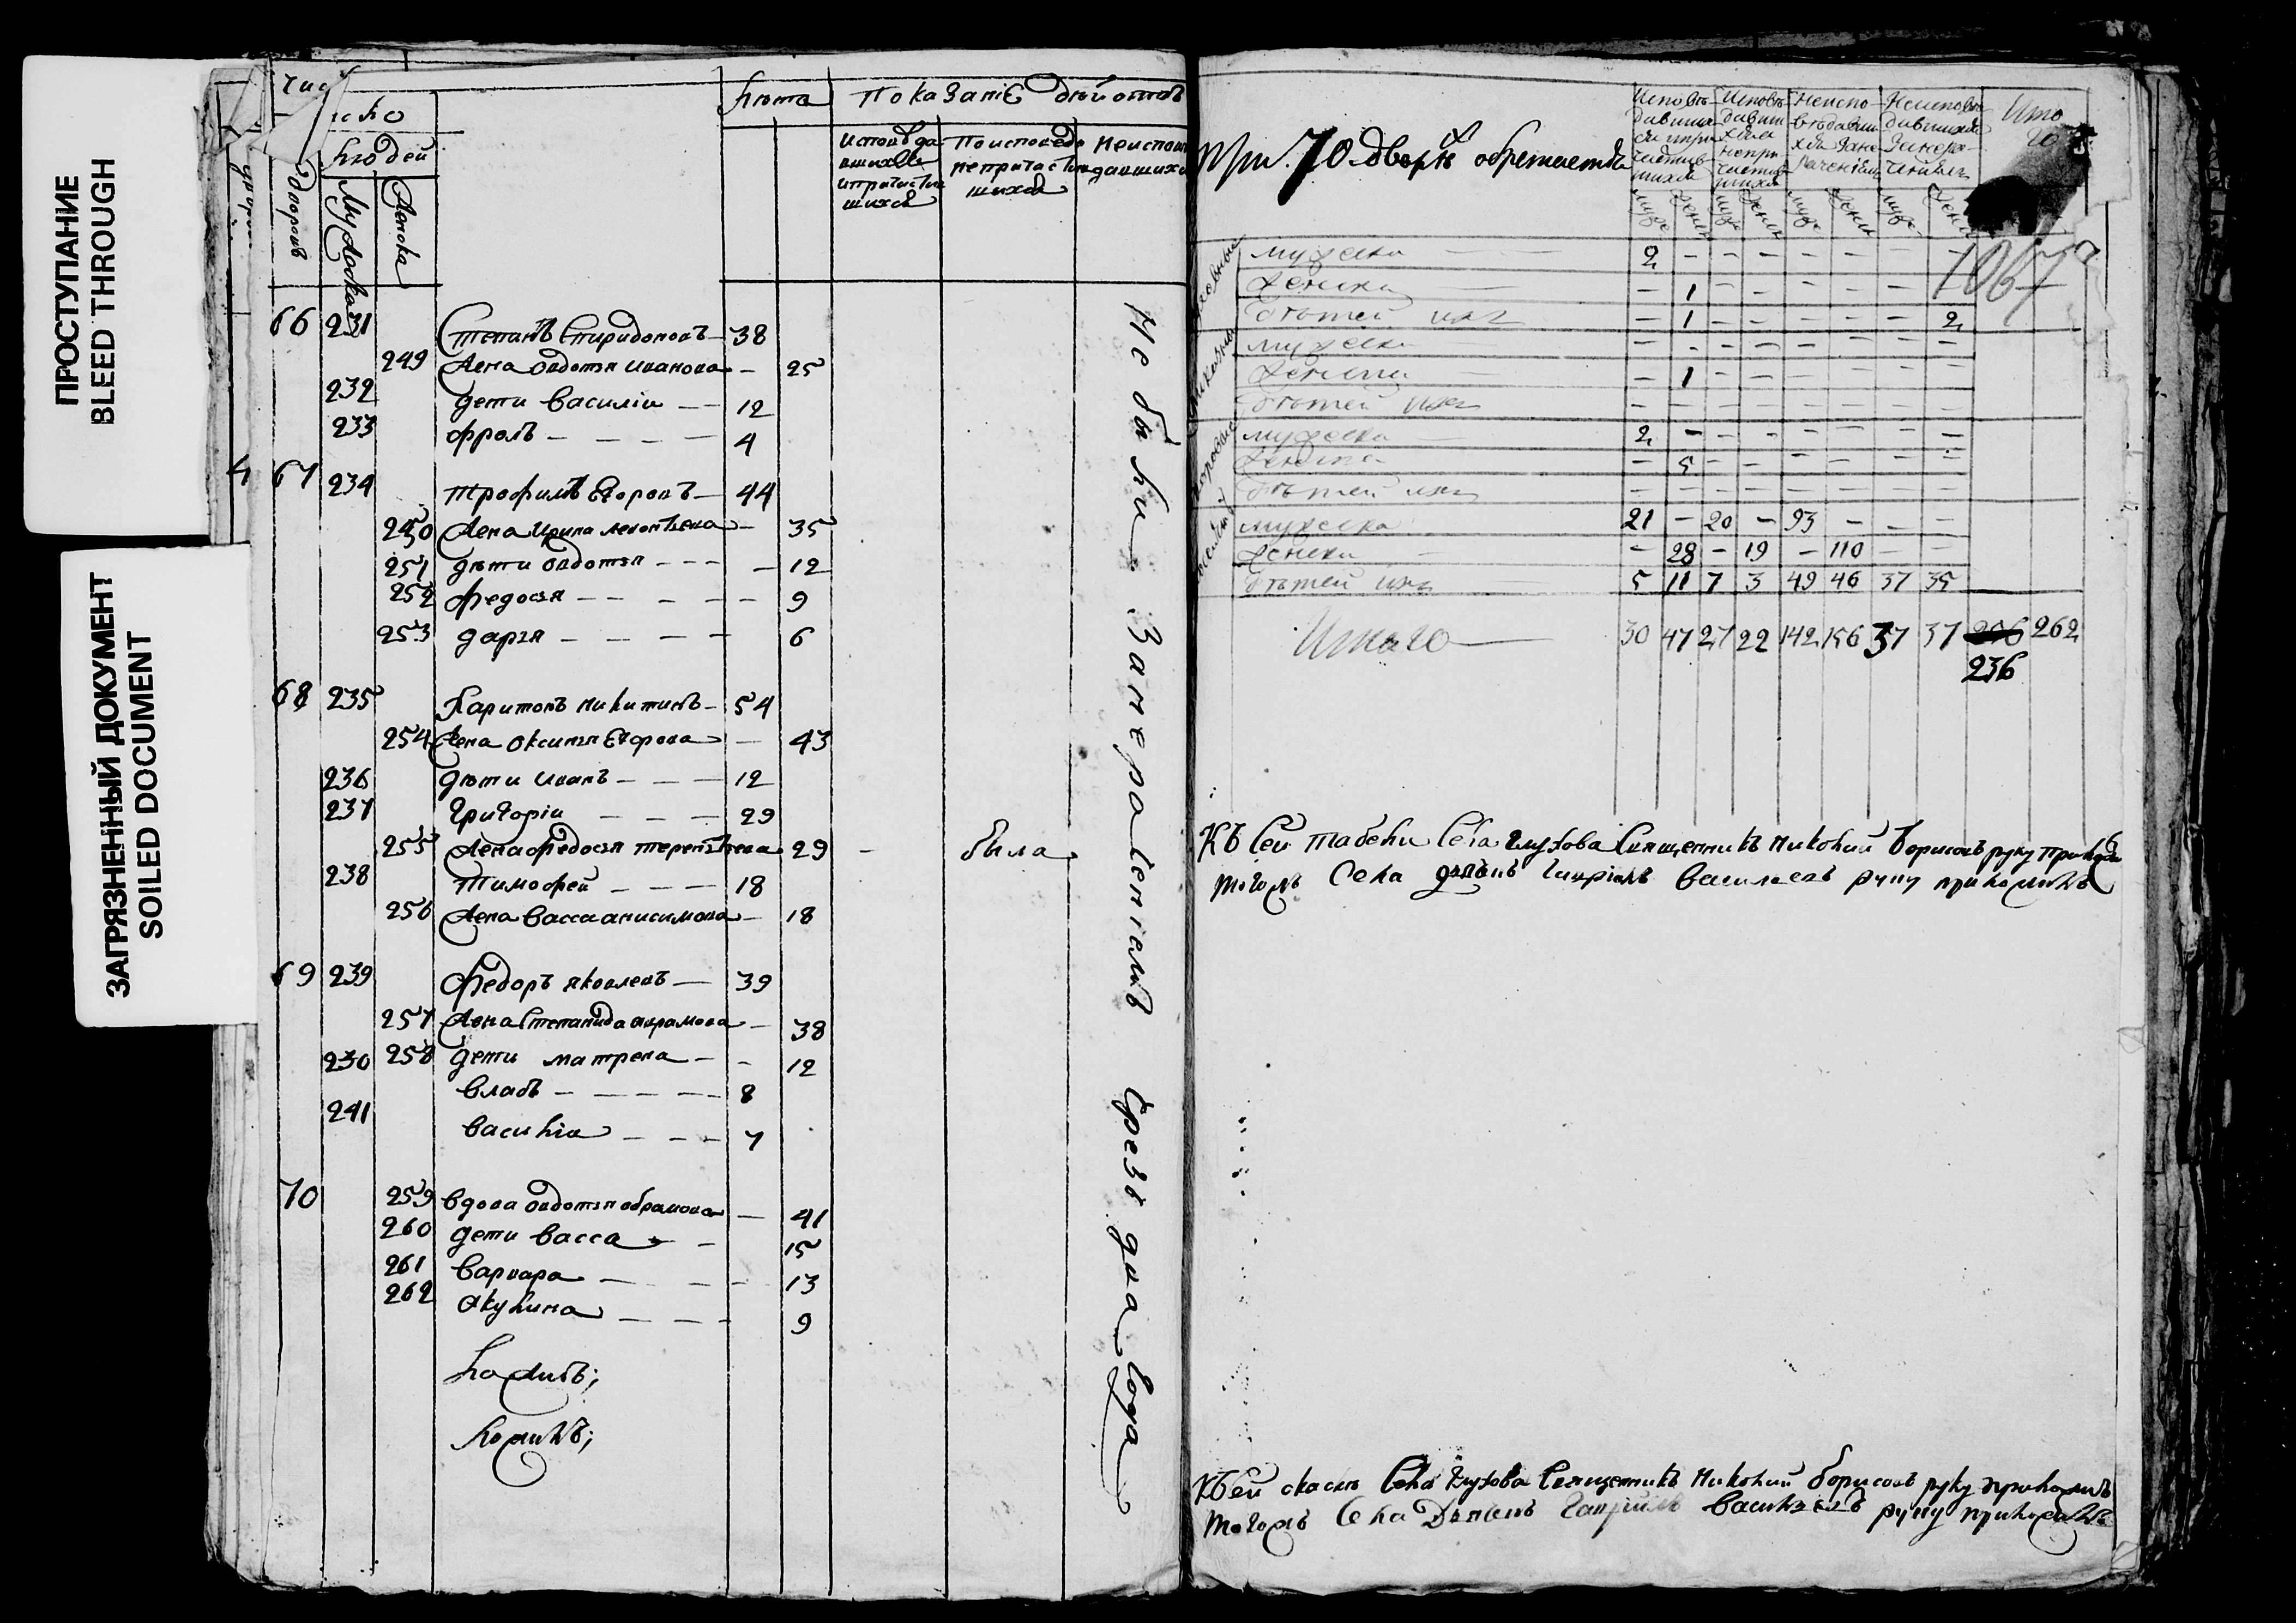 ПРОСТУПАНИЕ
BLEED THROUGH
ЗАГРЯЗНЕННЫЙ ДОКУМЕНТ
SOILED DOCUMENT
Число
людей
дворовъ
Мужеска
Женска
Лѣта
Показаніе
Исповѣдавшихся и причастившихся
По исповѣди не причастившихся
Не исповѣдавшихся
66 231 Степанъ Спиридоновъ — 38
249 Жена Овдотья Иванова — 25
232 дети Василіи — — 12
233 фролъ — — — — 4
4 67 234 трофимъ Егоровъ — 44
250 Жена Ирина Леонтьева — 35
251 дѣти Овдотья — — — — 12
252 Федосья — — — — — 9
253 дарья — — — — 6
68 235 Харитонъ Никитинъ — 54
254 Жена Оксинья Егорова — 43
236 дѣти Иванъ — — — 12
237 Григоріи — — — 29
255 Жена Федосья терентьева 29 — была
238 Тимофей — — — 18
256 Жена Васса анисимова — 18
69 239 Федоръ яковлевъ — 39
257 Жена Степанида аврамова — 38
230 258 дети матрена — — 12
Власъ — — — — — 8
241
Василіи — — — — 7
70 259 Вдова Овдотья абрамова — 41
260 дети Васса — — 15
261 Варвара — — — — 13
262 Акулина — — — — 9
Не были За нерачениемъ Чрезъ два года
при 70 дворѣхъ обретается
Итого
муж жен муж жен муж жен муж жен
1067
мужеска 2 — — — — — — —
женска — 1 — — — — — —
дѣтей ихъ — 1 — — — — — 2
мужеска — — — — — — — —
женска — 1 — — — — — —
дѣтей ихъ — — — — — — — —
мужеска 2 — — — — — — —
женска — 5 — — — — — —
дѣтей ихъ — — — — — — — —
мужеска 21 — 20 — 93 — — —
женска — 28 — 19 — 110 — —
дѣтей ихъ 5 11 7 3 49 46 37 35
Итого — 30 47 27 22 142 156 37 37 262
236
Къ сей табели Села Глухова Священникъ Николай Борисовъ руку приложилъ
тогожъ Села дьконъ Гавріилъ Василевъ руку приложилъ
К сей Села Глухова Священникъ Николай Борисовъ руку приложилъ
тогожъ Села Гавріилъ Васильевъ руку приложилъ